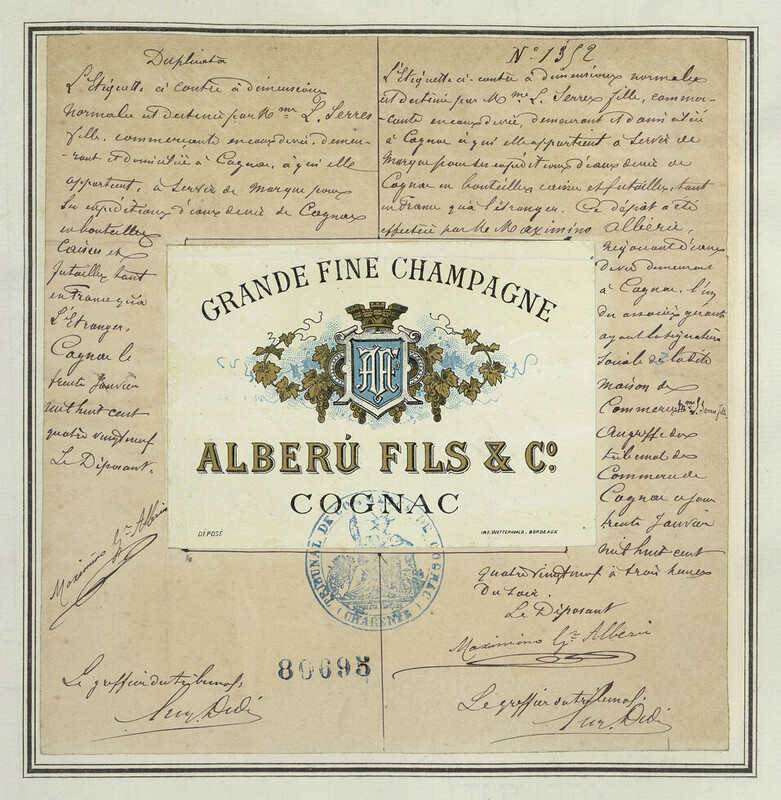 Duplicata
L'Etiquette ci contre à dimensions
normales est destinée par Mme L. Serres
fille, commerçante en eaux de vie, demeu-
rant et domiciliée à Cognac, à qui elle
appartient, à servir de marque pour
ses expéditions d'eaux de vie de Cognac
en bouteilles
caisses et
futailles, tant
en France qu'à
L'Etranger.
Cognac le
trente Janvier
mil huit cent
quatre vingt neuf
Le Déposant.
Maximino Gz Alberú
Le greffier du tribunal,
N° 1352
L'Etiquette ci-contre à dimensions normales
est destinée par Mme L. Serres fille, commer-
çante en eaux de vie, demeurant et domiciliée
à Cognac à qui elle appartient à servir de
Marque pour ses expéditions d'eaux de vie de
Cognac en bouteilles caisses et futailles, tant
en France qu'à l'étranger. Ce dépôt a été
effectué par Mr Maximino Alberú,
négociant d'eaux
de vie demeurant
à Cognac, l'un
des associés gérants
ayant la signature
sociale de la dite
maison de
Commerce Mme L. Serres fille
Au greffe du
tribunal de
Commerce de
Cognac ce jour
trente Janvier
mil huit cent
quatre vingt neuf à trois heures
du soir.
Le Déposant
Maximino Gz Alberú
Le greffier du tribunal,
GRANDE FINE CHAMPAGNE
ALBERÚ FILS & Cº.
COGNAC
DÉPOSÉ
IMP. WETTERWALD. BORDEAUX
TRIBUNAL DE COMMERCE DE COGNAC
(CHARENTE)
80695